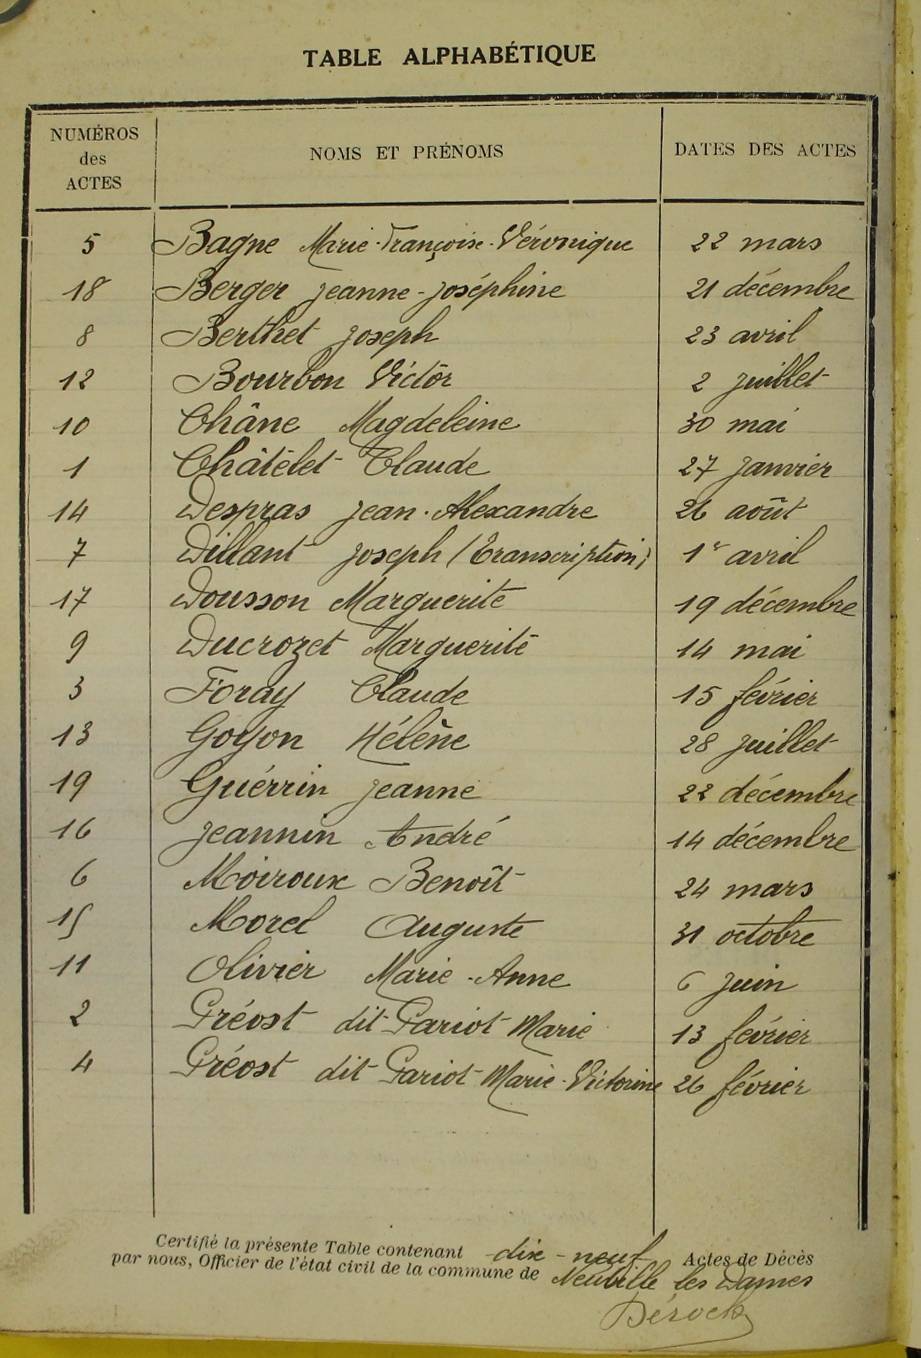 TABLE ALPHABÉTIQUE
NUMÉROS des ACTES NOMS ET PRÉNOMS DATES DES ACTES
5 Bagne Marie-Françoise-Véronique 22 mars
18 Berger Jeanne-Joséphine 21 décembre
8 Berthet Joseph 23 avril
12 Bourbon Victor 2 juillet
10 Châne Magdeleine 30 mai
1 Châtelet Claude 27 janvier
14 Despras Jean-Alexandre 26 août
7 Dillant Joseph (Transcription) 1er avril
17 Dousson Marguerite 19 décembre
9 Ducrozet Marguerite 14 mai
3 Foray Claude 15 février
13 Goyon Hélène 28 juillet
19 Guérrin Jeanne 22 décembre
16 Jeannin André 14 décembre
6 Moiroux Benoît 24 mars
15 Morel Auguste 31 octobre
11 Olivier Marie-Anne 6 juin
2 Préost dit Pariot Marie 13 février
4 Préost dit Pariot Marie-Victorine 26 février
Certifié la présente Table contenant dix-neuf Actes de Décès
par nous, Officier de l'état civil de la commune de Neuville les Dames